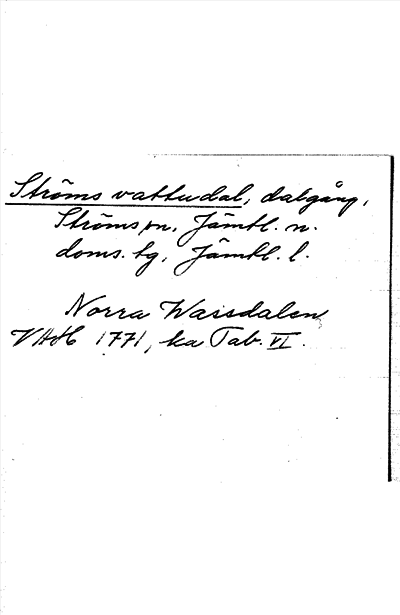 Ströms vattudal, dalgång,
Ströms sn, Jämtl. n.
doms. tg, Jämtl. l.
Norra Wassdalen
VAH 1771, ka Tab. VI.